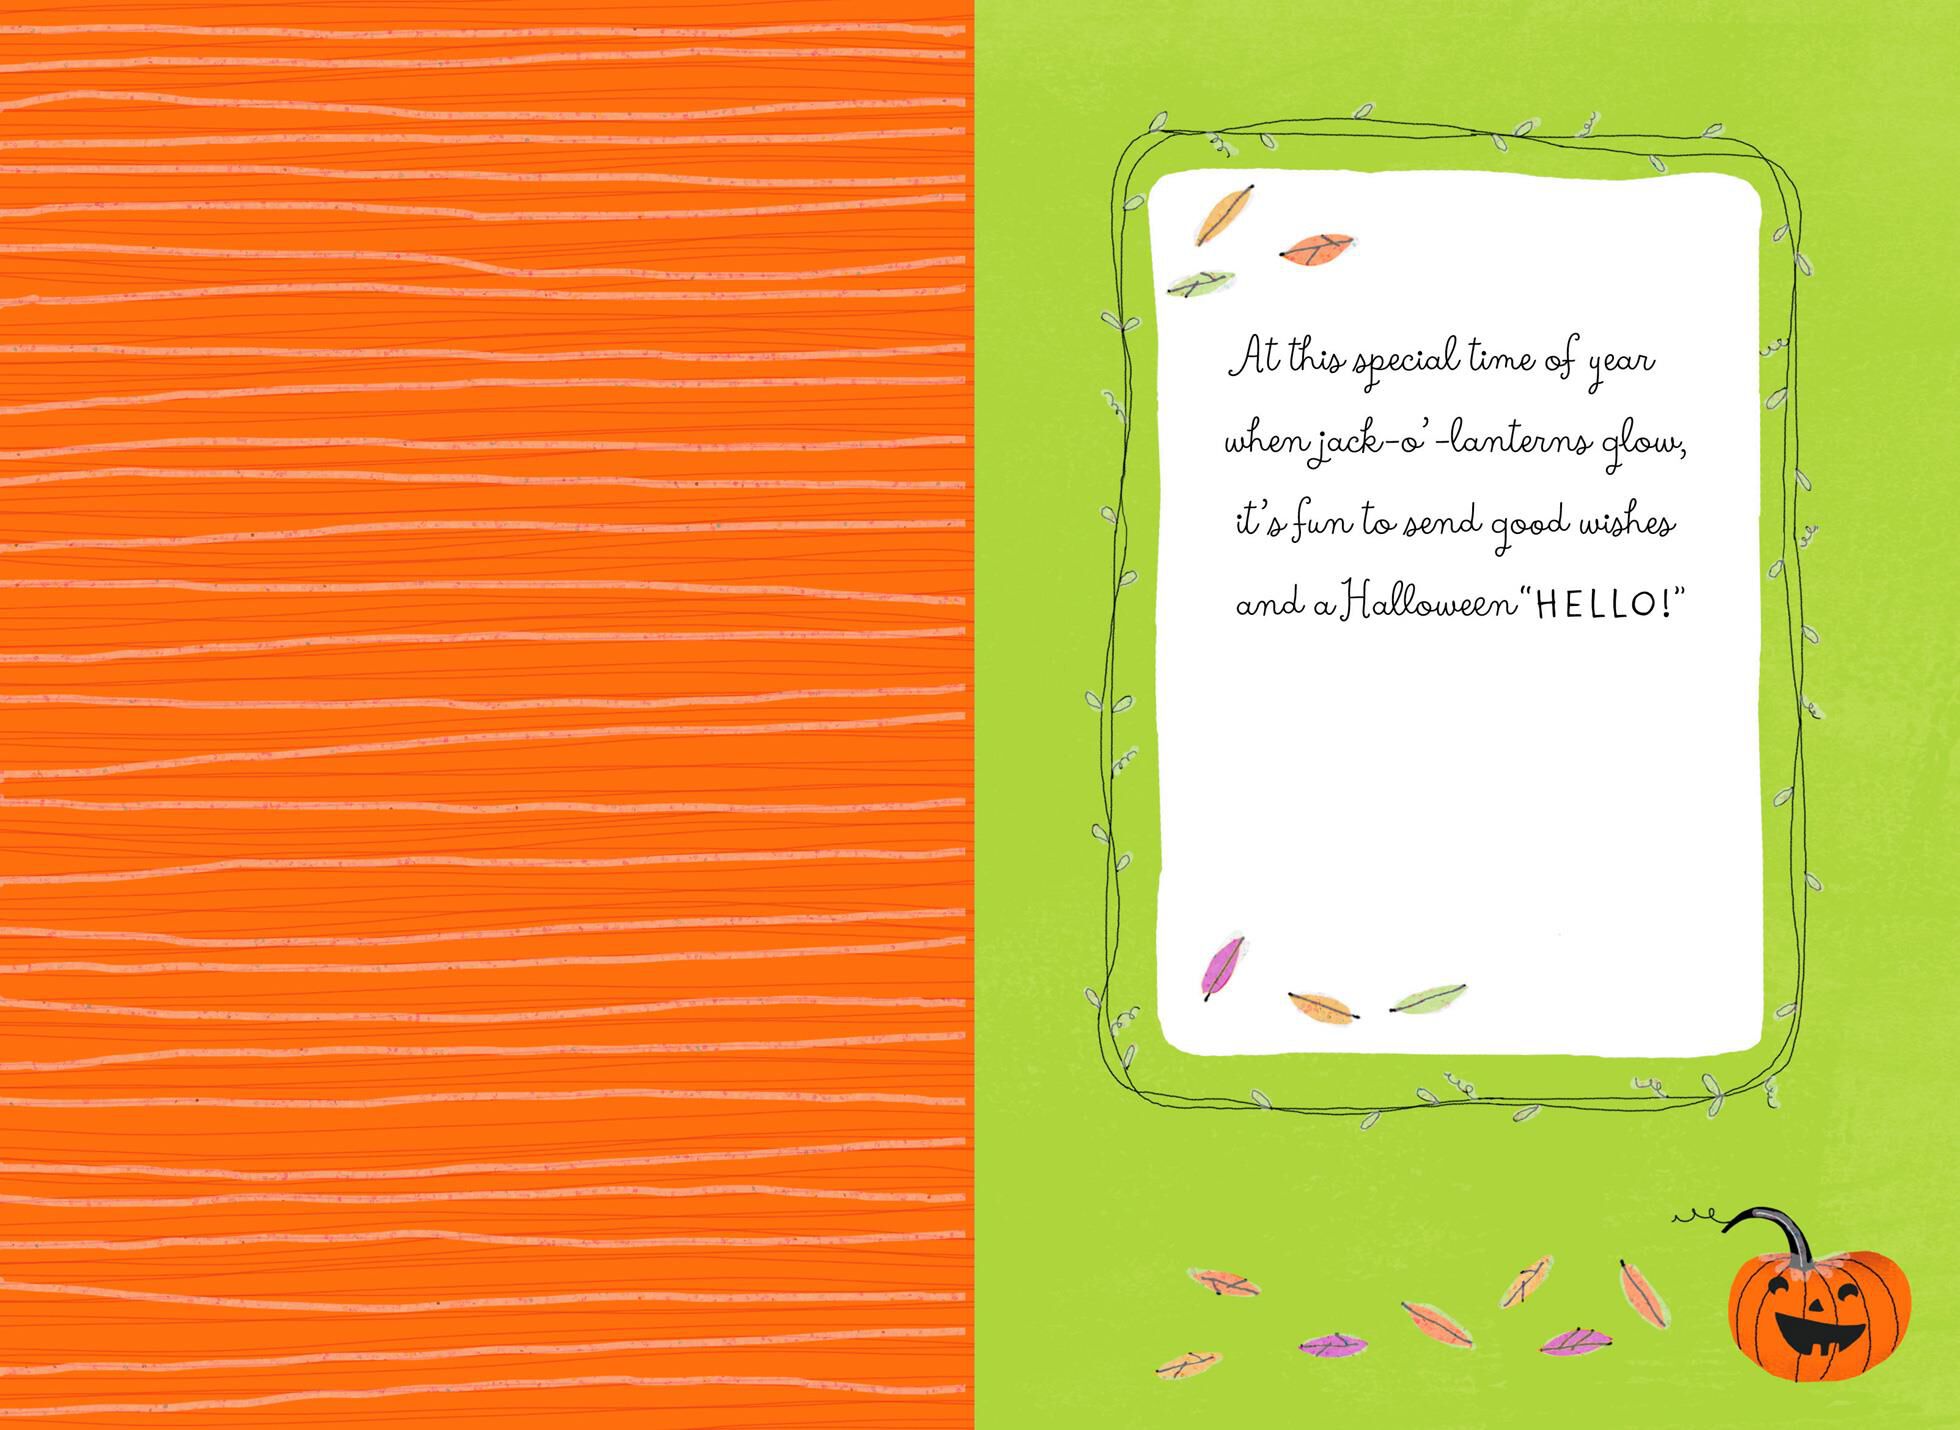 At this special time of year
when jack-o’-lanterns glow,
it’s fun to send good wishes
and a Halloween “HELLO!”